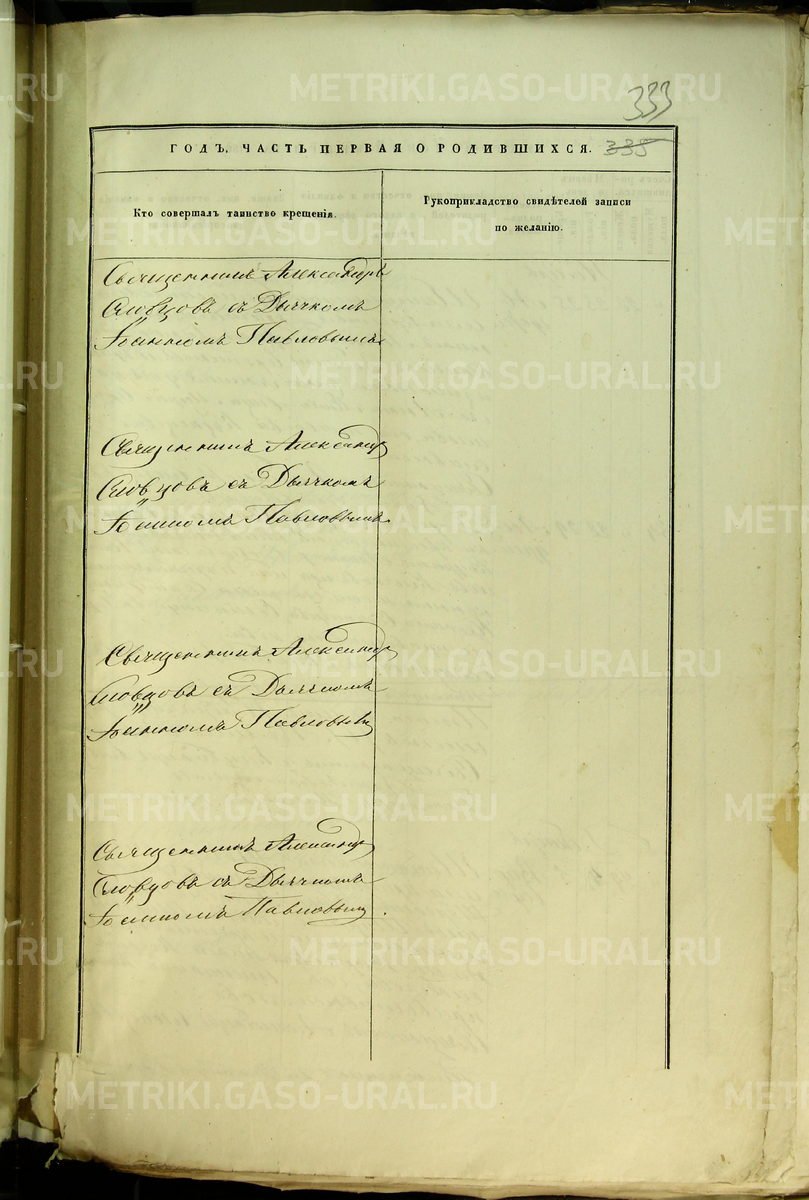 333
ГОДЪ, ЧАСТЬ ПЕРВАЯ О РОДИВШИХСЯ. 335
Кто совершалъ таинство крещенія.
Рукоприкладство свидѣтелей записи
по желанію.
Священникъ Александръ
Словцовъ съ Дьячкомъ
Іоанномъ Павловымъ
Священникъ Александръ
Словцовъ съ Дьячкомъ
Іоанномъ Павловымъ
Священникъ Александръ
Словцовъ съ Дьячкомъ
Іоанномъ Павловымъ
Священникъ Александръ
Словцовъ съ Дьячкомъ
Іоанномъ Павловымъ.
METRIKI.GASO-URAL.RU